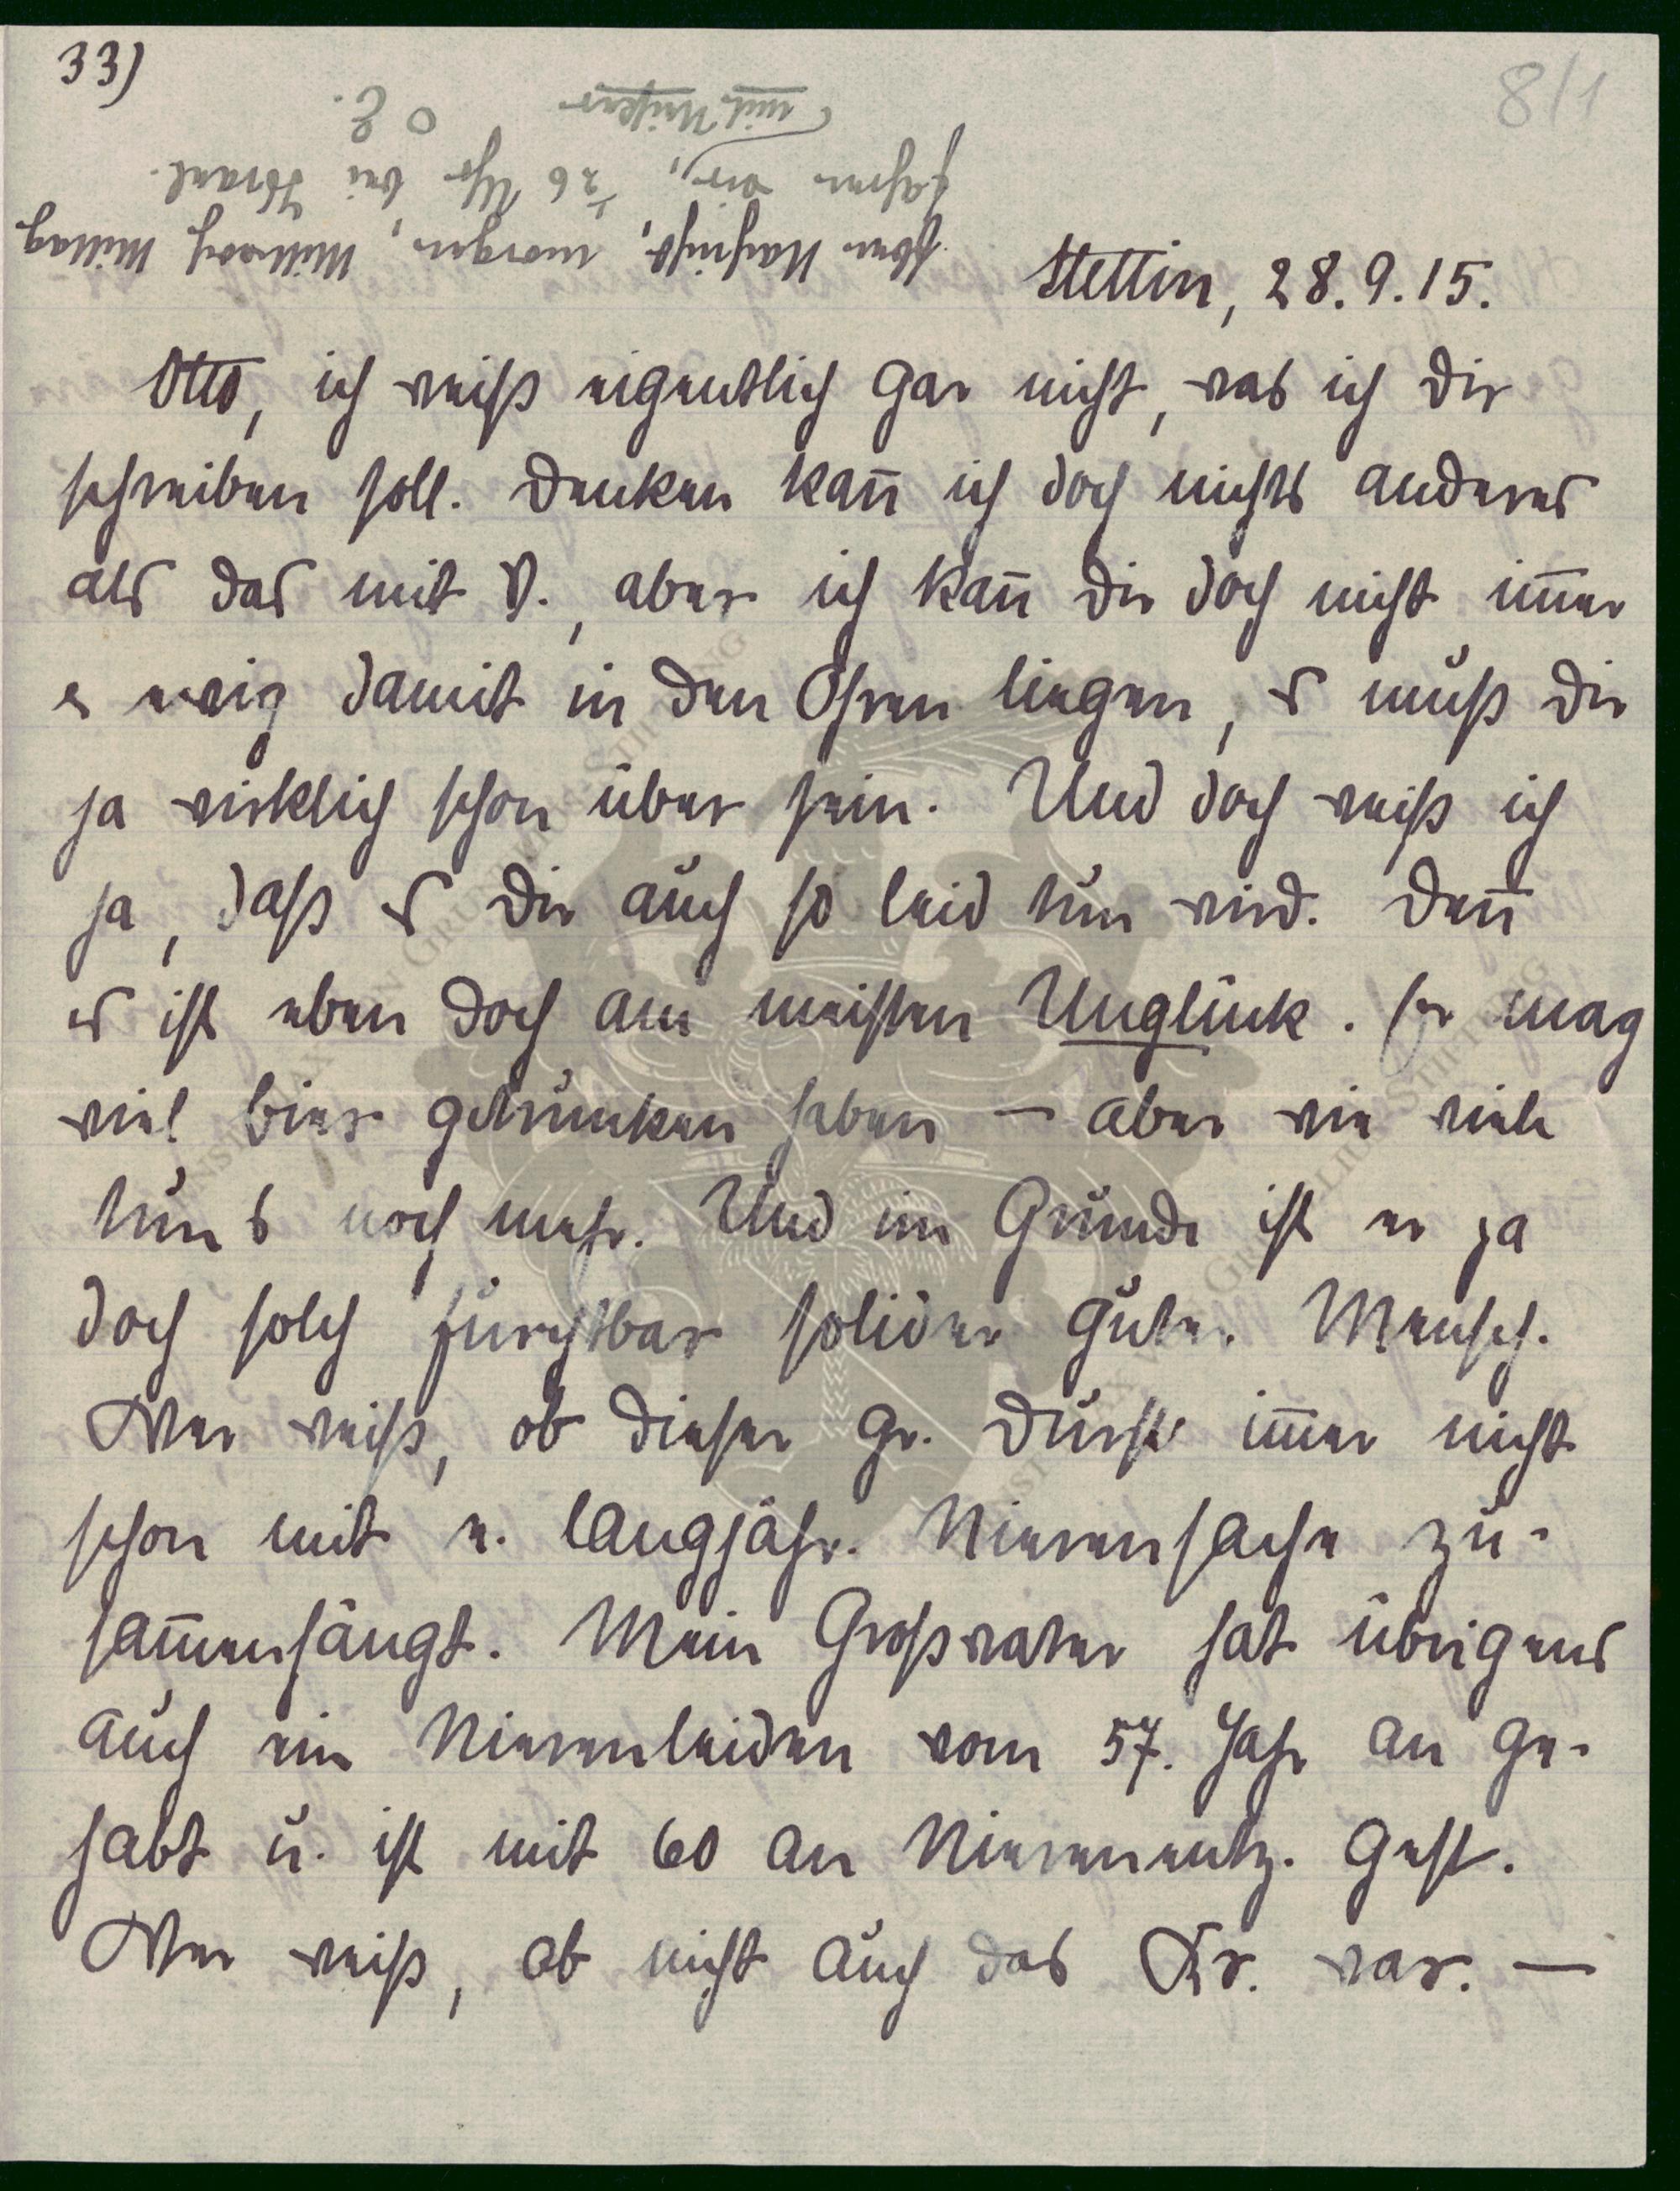 33)
8/1
Eben Nachricht, morgen, Mittwoch Mittag
fahren wir, ½6 Uhr bei
mit
O E.
Stettin, 28.9.15.
Otto, ich weiß eigentlich gar nicht, was ich Dir
schreiben soll. Denken kan̄ ich doch nichts anderes
als das mit V., aber ich kan̄ Dir doch nicht im̄er
e ewig damit in den Ohren liegen, es muß Dir
ja wirklich schon über sein. Und doch weiß ich
ja, daß es Dir auch so leid tun wird. Den̄
es ist eben doch am meisten Unglück. Er mag
viel Bier getrunken haben – aber wie viele
tun's noch mehr. Und im Grunde ist er ja
doch solch furchtbar solider guter Mensch.
Wer weiß, ob dieser gr. Durst im̄er nicht
schon mit e. langjähr. Nierensache zu-
sam̄enhängt. Mein Großvater hat übrigens
auch ein Nierenleiden vom 57. Jahr an ge-
habt u. ist mit 60 an Nierenentz. gest.
Wer weiß, ob nicht auch das Kr. war. —